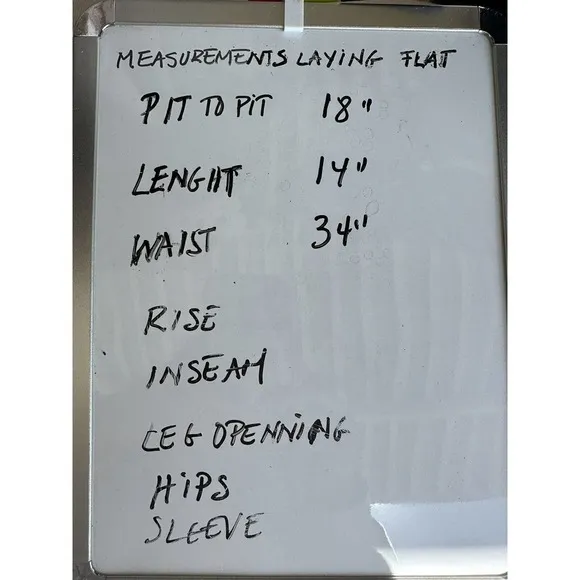 MEASUREMENTS LAYING FLAT
PIT TO PIT 18"
LENGHT 14"
WAIST 34"
RISE
INSEAM
LEG OPENNING
HIPS
SLEEVE